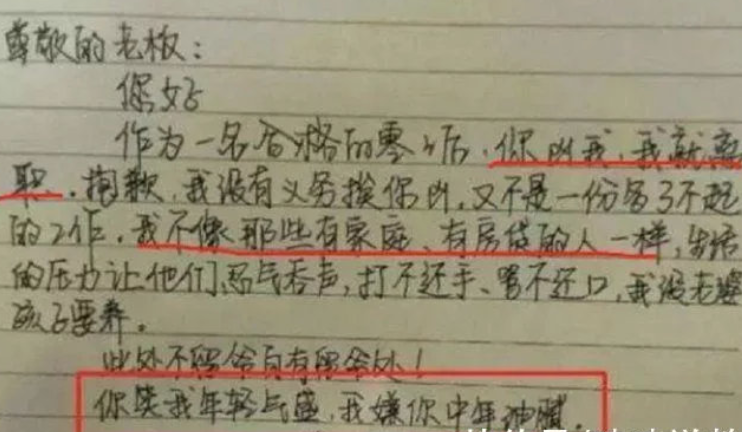 尊敬的老板：
您好
作为一名合格的零零后，你凶我，我就离
职。抱歉，我没有义务挨你凶，又不是一份多了不起
的工作，我不像那些有家庭、有房贷的人一样，生活
的压力让他们忍气吞声，打不还手、骂不还口，我没老婆
孩子要养。
此处不留爷自有留爷处！
你笑我年轻气盛，我嫌你中年油腻。